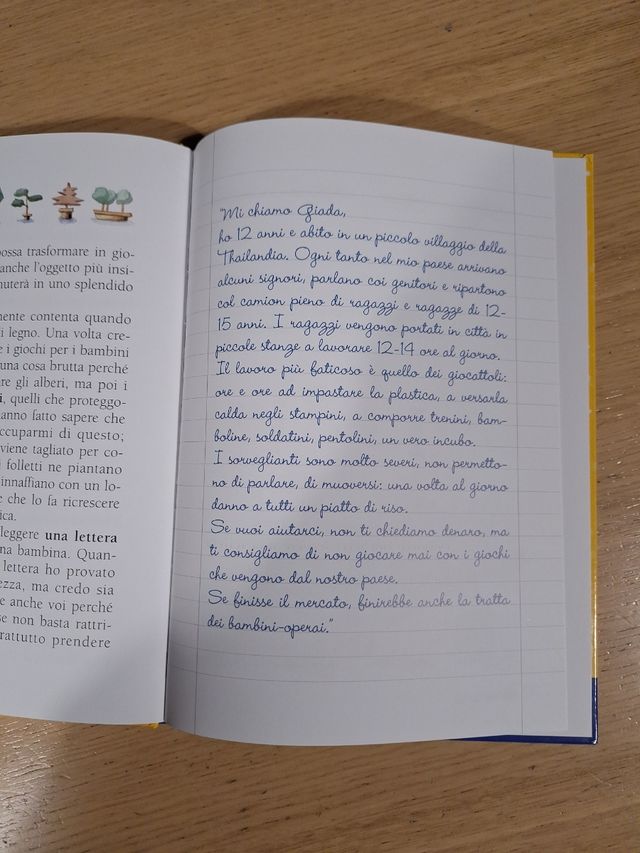 ossa trasformare in gio-
anche l'oggetto più insi-
nuterà in uno splendido
mente contenta quando
i legno. Una volta cre-
e i giochi per i bambini
una cosa brutta perché
re gli alberi, ma poi i
i, quelli che proteggo-
anno fatto sapere che
ccuparmi di questo;
viene tagliato per co-
i folletti ne piantano
innaffiano con un lo-
e che lo fa ricrescere
ica.
leggere una lettera
na bambina. Quan-
lettera ho provato
ezza, ma credo sia
e anche voi perché
se non basta rattri-
rattutto prendere
"Mi chiamo Giada,
ho 12 anni e abito in un piccolo villaggio della
Thailandia. Ogni tanto nel mio paese arrivano
alcuni signori, parlano coi genitori e ripartono
col camion pieno di ragazzi e ragazze di 12-
15 anni. I ragazzi vengono portati in città in
piccole stanze a lavorare 12-14 ore al giorno.
Il lavoro più faticoso è quello dei giocattoli:
ore e ore ad impastare la plastica, a versarla
calda negli stampini, a comporre trenini, bam-
boline, soldatini, pentolini, un vero incubo.
I sorveglianti sono molto severi, non permetto-
no di parlare, di muoversi: una volta al giorno
danno a tutti un piatto di riso.
Se vuoi aiutarci, non ti chiediamo denaro, ma
ti consigliamo di non giocare mai con i giochi
che vengono dal nostro paese.
Se finisse il mercato, finirebbe anche la tratta
dei bambini-operai."